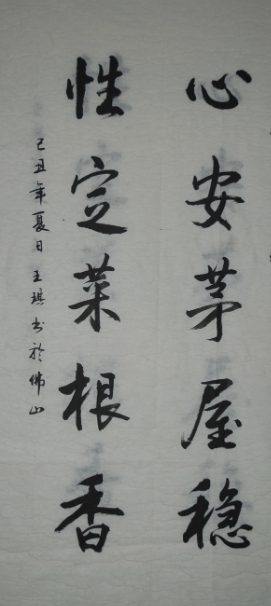 心安茅屋稳
性定菜根香
己丑年夏日王琪书於佛山